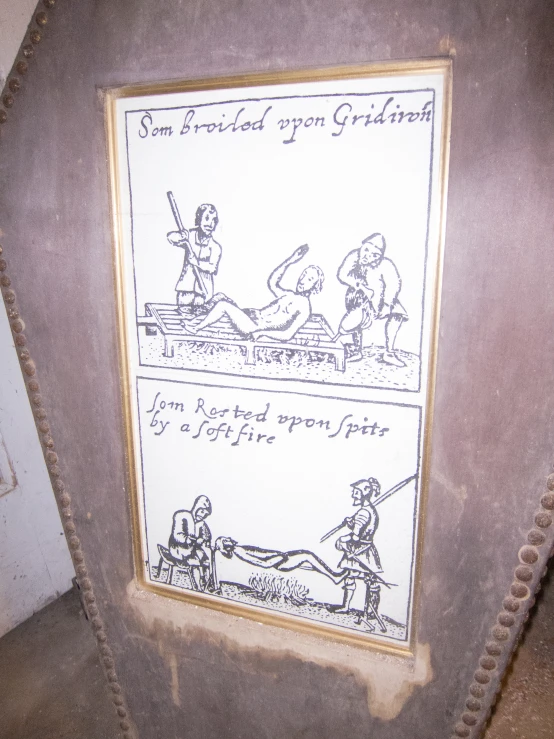 Som broiled vpon Gridiron
Som Rosted vpon Spits
by a Soft fire